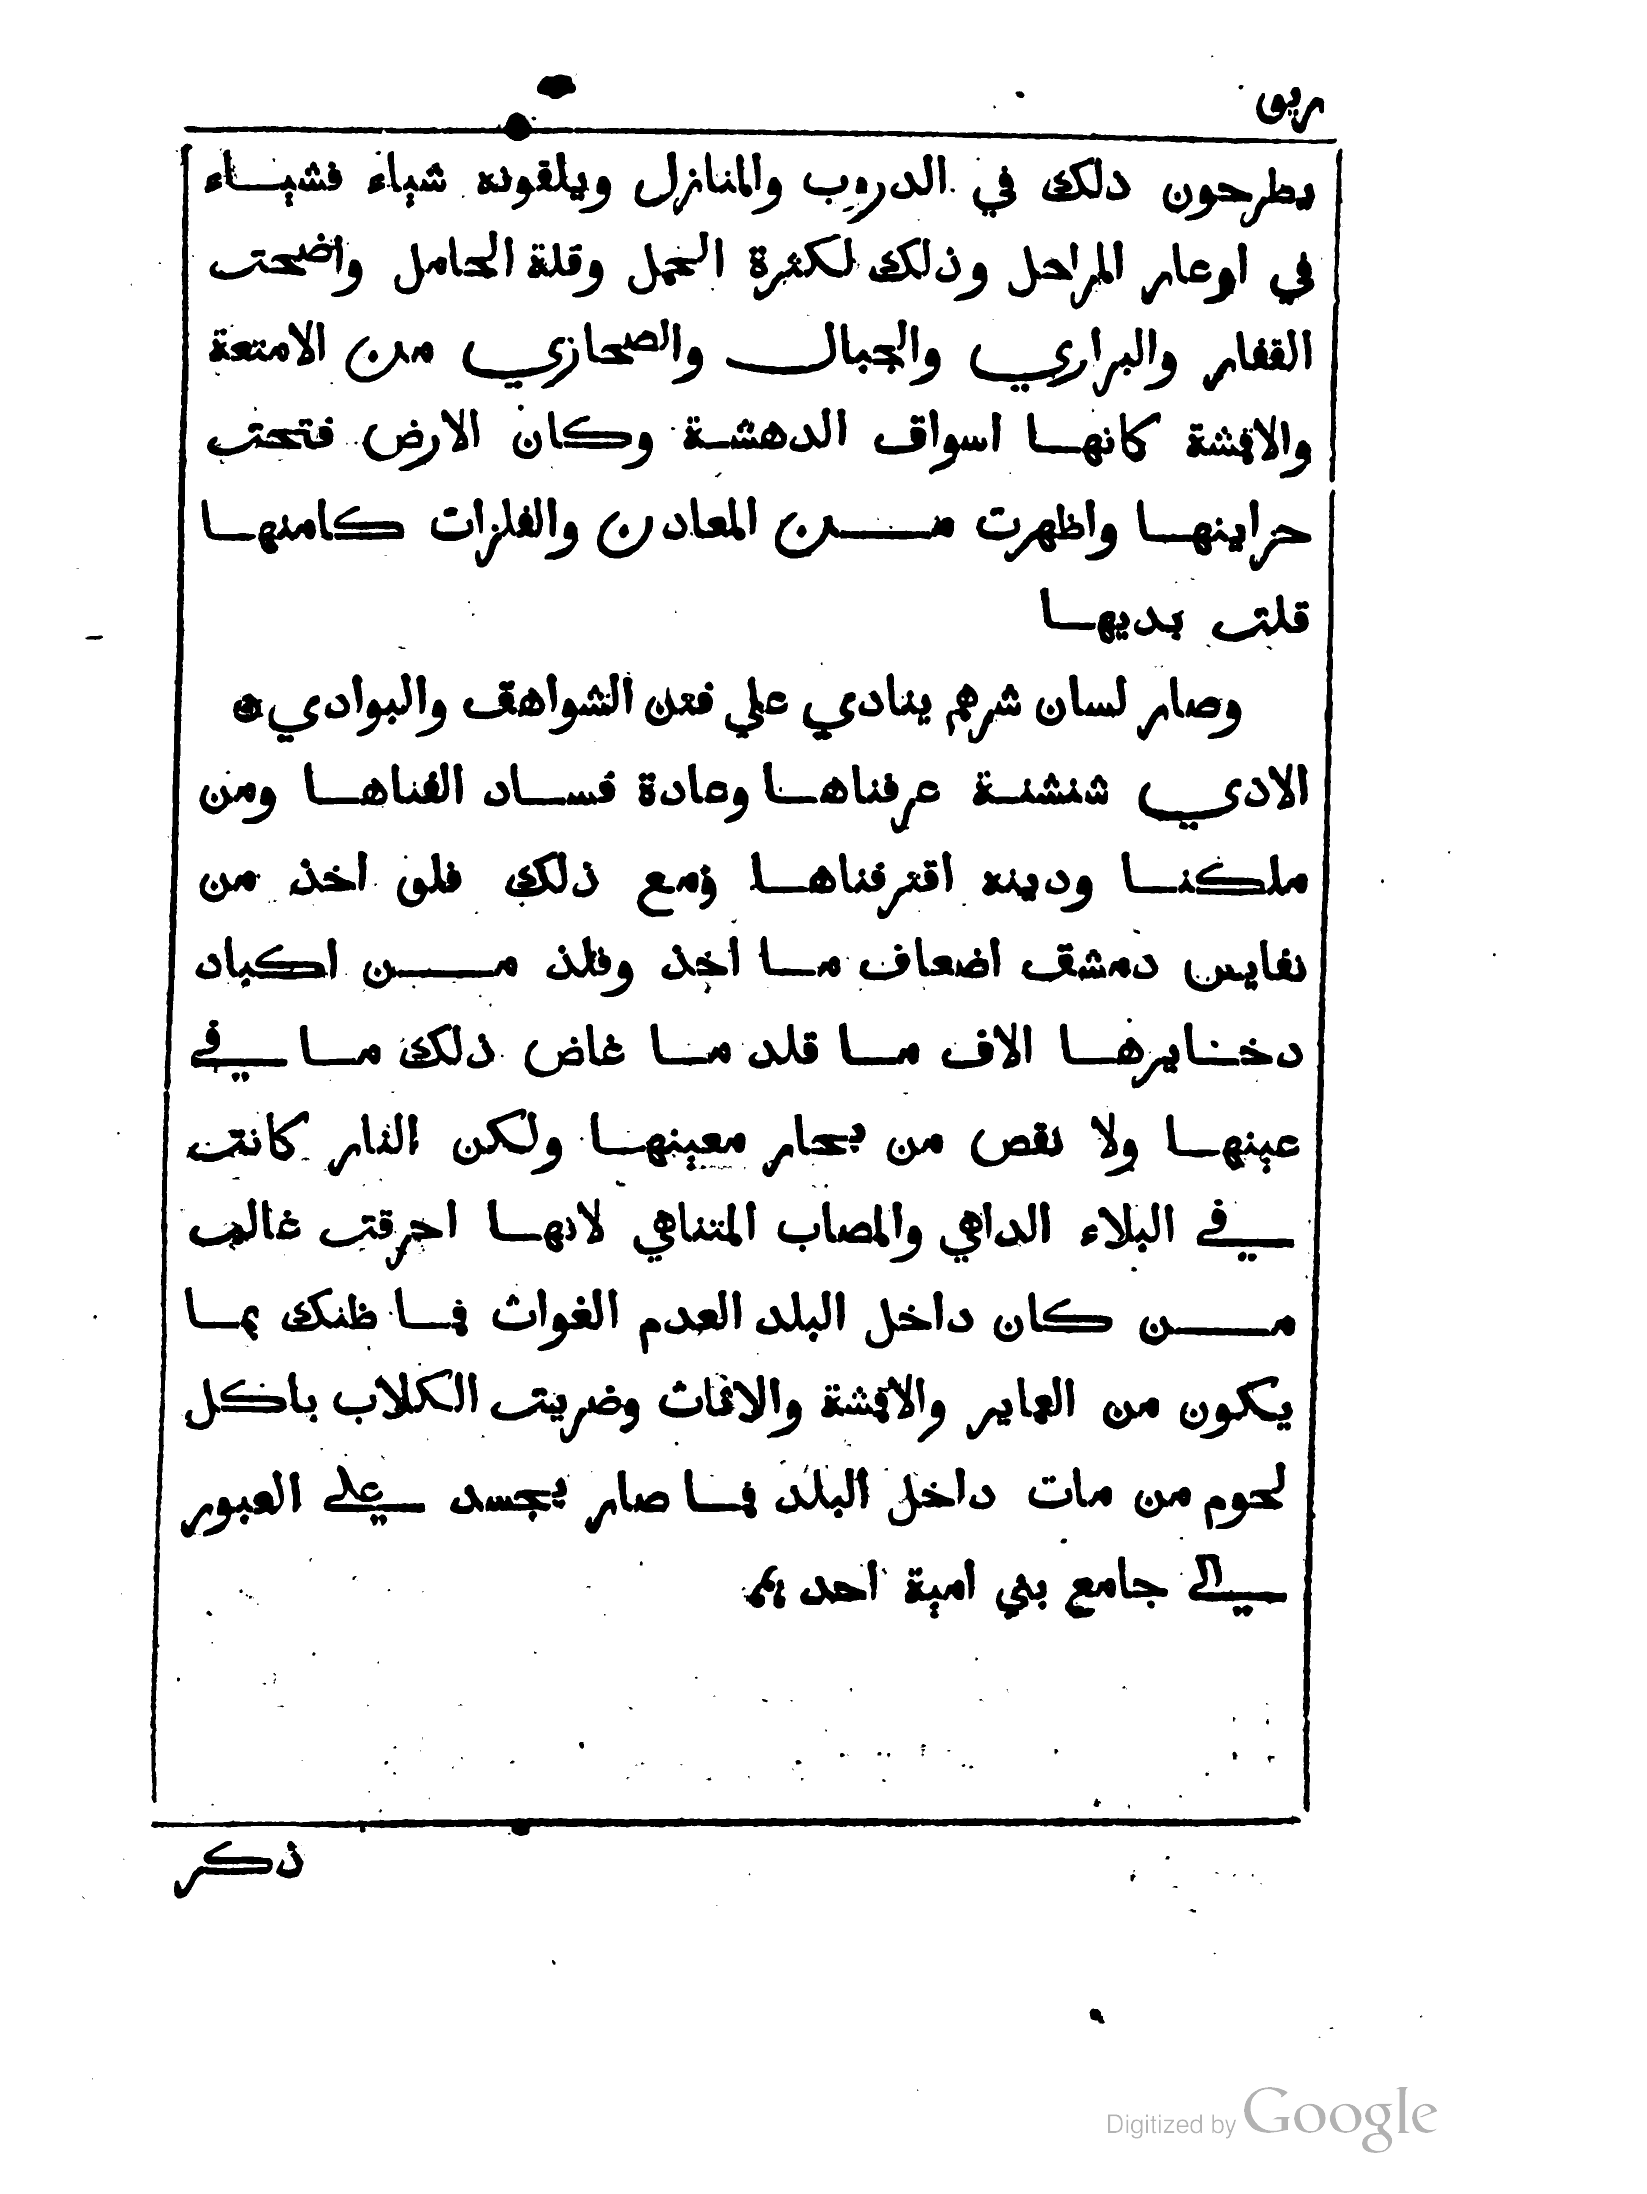 يطرحون دلك في الدروب والمنازل ويلقونه شياء فشيـاء
في اوعار المراحل وذلك لكثرة الحمل وقلة الحامل واضحت
القفار والبراري والجبال والصحازي من الامتعة
والاقمشة كانها اسواق الدهشة وكان الارض فتحت
حراينها واظهرت من المعادن والفلزات كامنها
قلت بديها
وصار لسان شرهم ينادي علي قنن الشواهق والبوادي
الادي شنشنة عرفناها وعادة فساد الفناها ومن
ملكنا ودينه اقترفناها ومع ذلك فلو اخذ من
نفايس دمشق اضعاف ما اخذ وفلذ من اكباد
دخنايرها الاف ما قلد ما غاض ذلك ما في
عينها ولا نقص من بحار معينها ولكن النار كانت
في البلاء الداهي والمصاب المتناهي لانها احرقت غالب
من كان داخل البلد العدم الغواث فما ظنك بما
يكون من العماير والاقمشة والاثاث وضريت الكلاب باكل
لحوم من مات داخل البلد فما صار يجسد علي العبور
الي جامع بني امية احد
ذكر
Digitized by Google